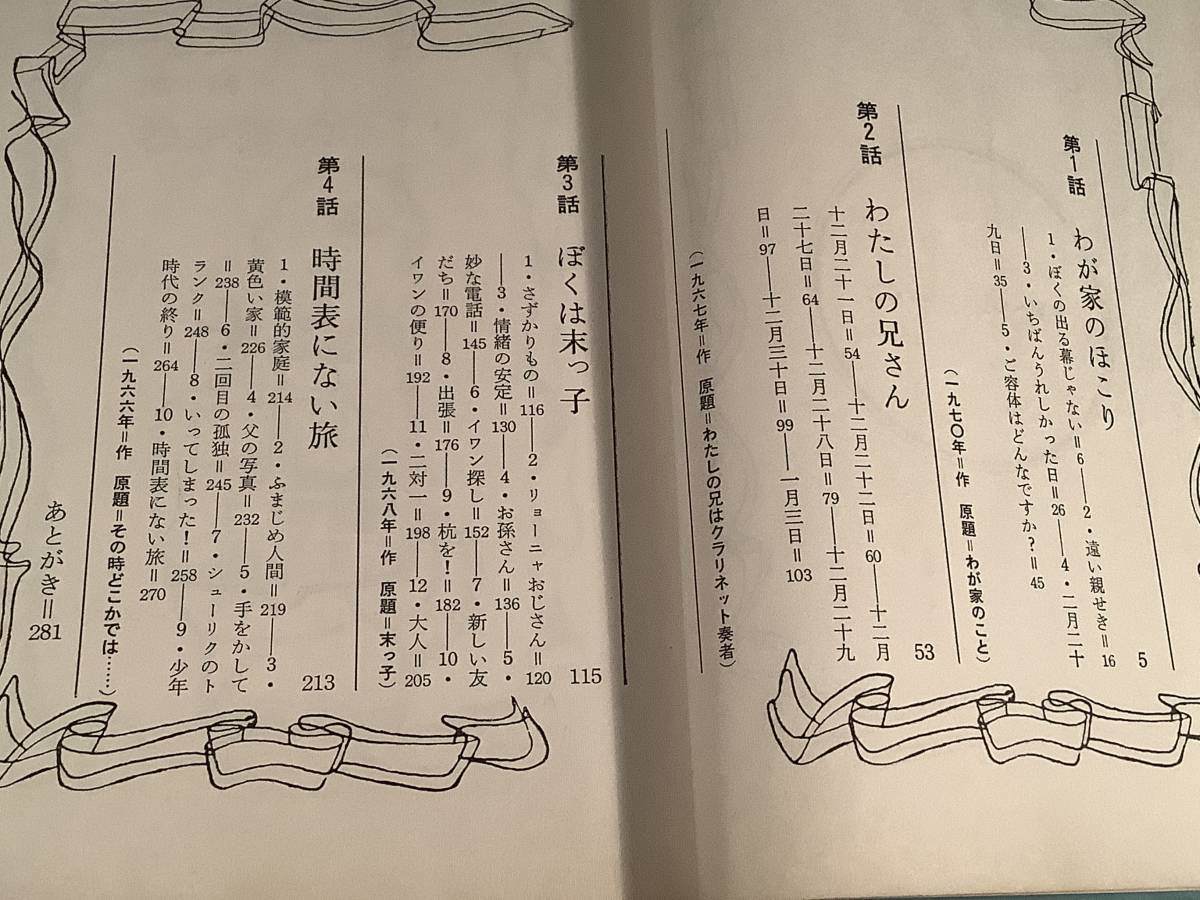 第1話　わが家のほこり　5
1・ぼくの出る幕じゃない＝6――2・遠い親せき＝16
――3・いちばんうれしかった日＝26――4・二月二十
九日＝35――5・ご容体はどんなですか？＝45
（一九七〇年＝作　原題＝わが家のこと）
第2話　わたしの兄さん　53
十二月二十一日＝54――十二月二十二日＝60――十二月
二十七日＝64――十二月二十八日＝79――十二月二十九
日＝97――十二月三十日＝99――一月三日＝103
（一九六七年＝作　原題＝わたしの兄はクラリネット奏者）
第3話　ぼくは末っ子　115
1・さずかりもの＝116――2・リョーニャおじさん＝120
――3・情緒の安定＝130――4・お孫さん＝136――5・
妙な電話＝145――6・イワン探し＝152――7・新しい友
だち＝170――8・出張＝176――9・杭を！＝182――10・
イワンの便り＝192――11・二対一＝198――12・大人＝205
（一九六八年＝作　原題＝末っ子）
第4話　時間表にない旅　213
1・模範的家庭＝214――2・ふまじめ人間＝219――3・
黄色い家＝226――4・父の写真＝232――5・手をかして
＝238――6・二回目の孤独＝245――7・シューリクのト
ランク＝248――8・いってしまった！＝258――9・少年
時代の終り＝264――10・時間表にない旅＝270
（一九六六年＝作　原題＝その時どこかでは……）
あとがき＝281